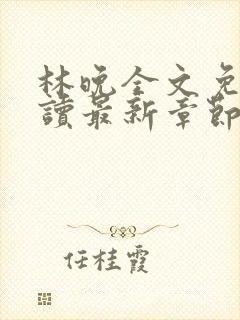 林晚全文免
讀最新章節
任桂霞